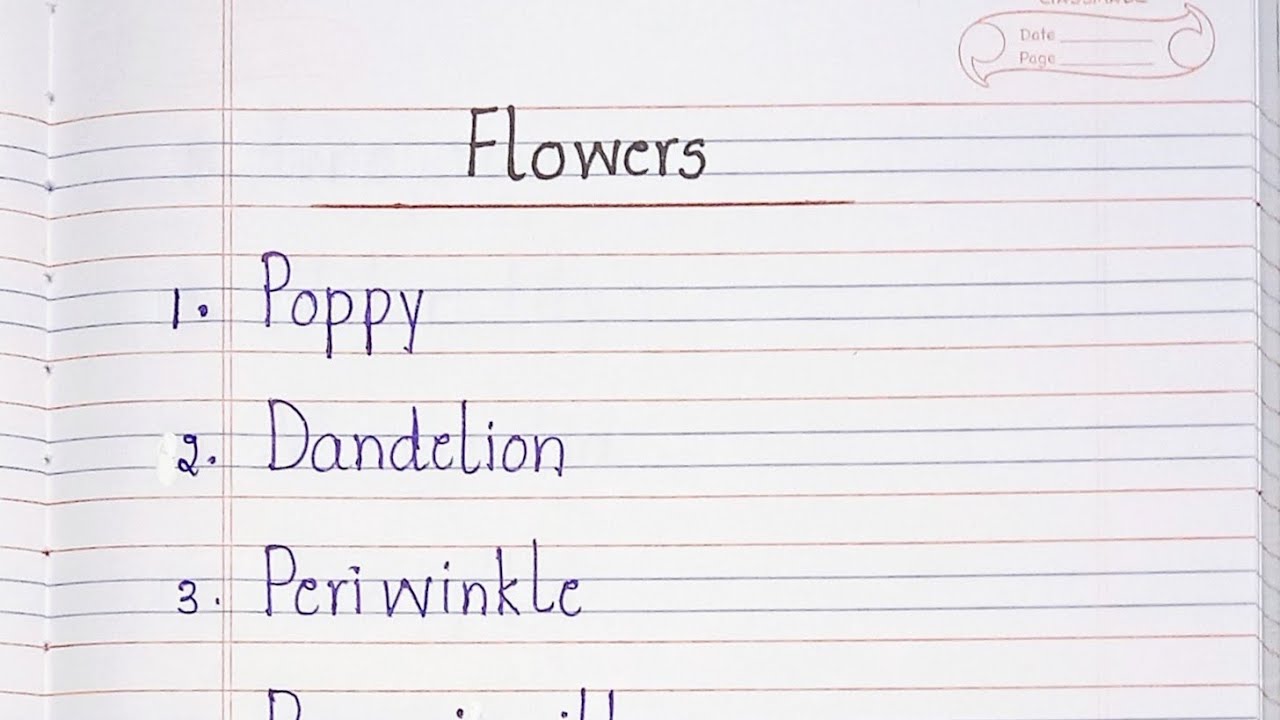 Date
Page
Flowers
1. Poppy
2. Dandelion
3. Periwinkle